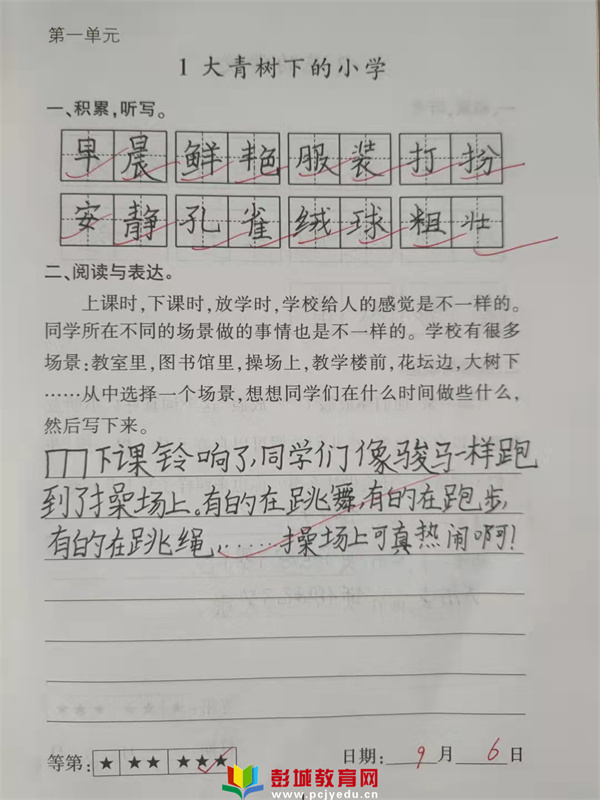 第一单元
1 大青树下的小学
一、积累,听写。
早晨 鲜艳 服装 打扮
安静 孔雀 绒球 粗壮
二、阅读与表达。
上课时,下课时,放学时,学校给人的感觉是不一样的。
同学所在不同的场景做的事情也是不一样的。学校有很多
场景:教室里,图书馆里,操场上,教学楼前,花坛边,大树下
……从中选择一个场景,想想同学们在什么时间做些什么,
然后写下来。
下课铃响了,同学们像骏马一样跑
到了操场上。有的在跳舞,有的在跑步,
有的在跳绳,……操场上可真热闹啊!
等第: ★ ★★ ★★★ 日期: 9 月 6 日
彭城教育网
www.pcjyedu.cn